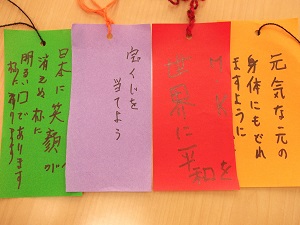 元気な元の
身体にもどれ
ますように
世界に平
和を
宝くじを
当てよう
日本に笑顔が
消えぬ様に
明るい日であります
様に